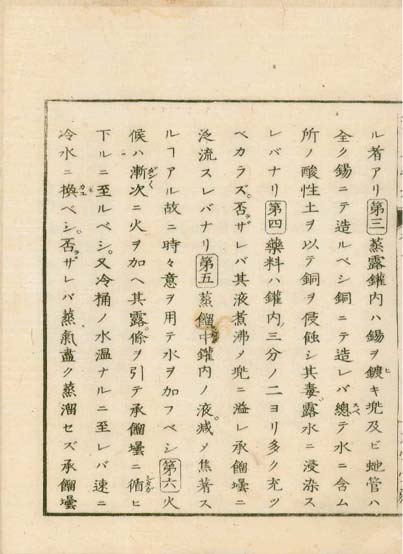 ル者アリ第三蒸露鑵内ハ錫ヲ鍍キ兠及ビ虵管ハ
全ク錫ニテ造ルベシ銅ニテ造レバ總テ水ニ含ム
所ノ酸性土ヲ以テ銅ヲ侵蝕シ其毒露水ニ浸淙ス
レバナリ第四藥料ハ鑵内三分ノ二ヨリ多ク充ツ
ベカラズ否ザレバ其液煮沸メ兠ニ溢レ承餾壜ニ
泛流スレバナリ第五蒸餾中鑵内ノ液減メ焦著ス
ルヿアル故ニ時々意ヲ用テ水ヲ加フベシ第六火
候ハ漸次ニ火ヲ加ヘ其露條ヲ引テ承餾壜ニ循ヒ
下ルニ至ルベシ又冷桶ノ水温ナルニ至レバ速ニ
冷水ニ換ベシ否ザレバ蒸氣盡ク蒸溜セズ承餾壜